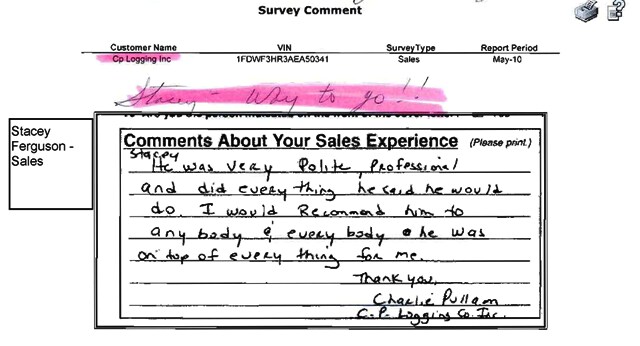 Survey Comment
Customer Name VIN SurveyType Report Period
Cp Logging Inc 1FDWF3HR3AEA50341 Sales May-10
Stacey - Way to go!!
Stacey
Ferguson -
Sales
Comments About Your Sales Experience (Please print.)
Stacey
He was very Polite, Professional
and did every thing he said he would
do. I would Recommend him to
any body & every body he was
on top of every thing for me.
Thank you,
Charlie Pullam
C.P. Logging Co. Inc.